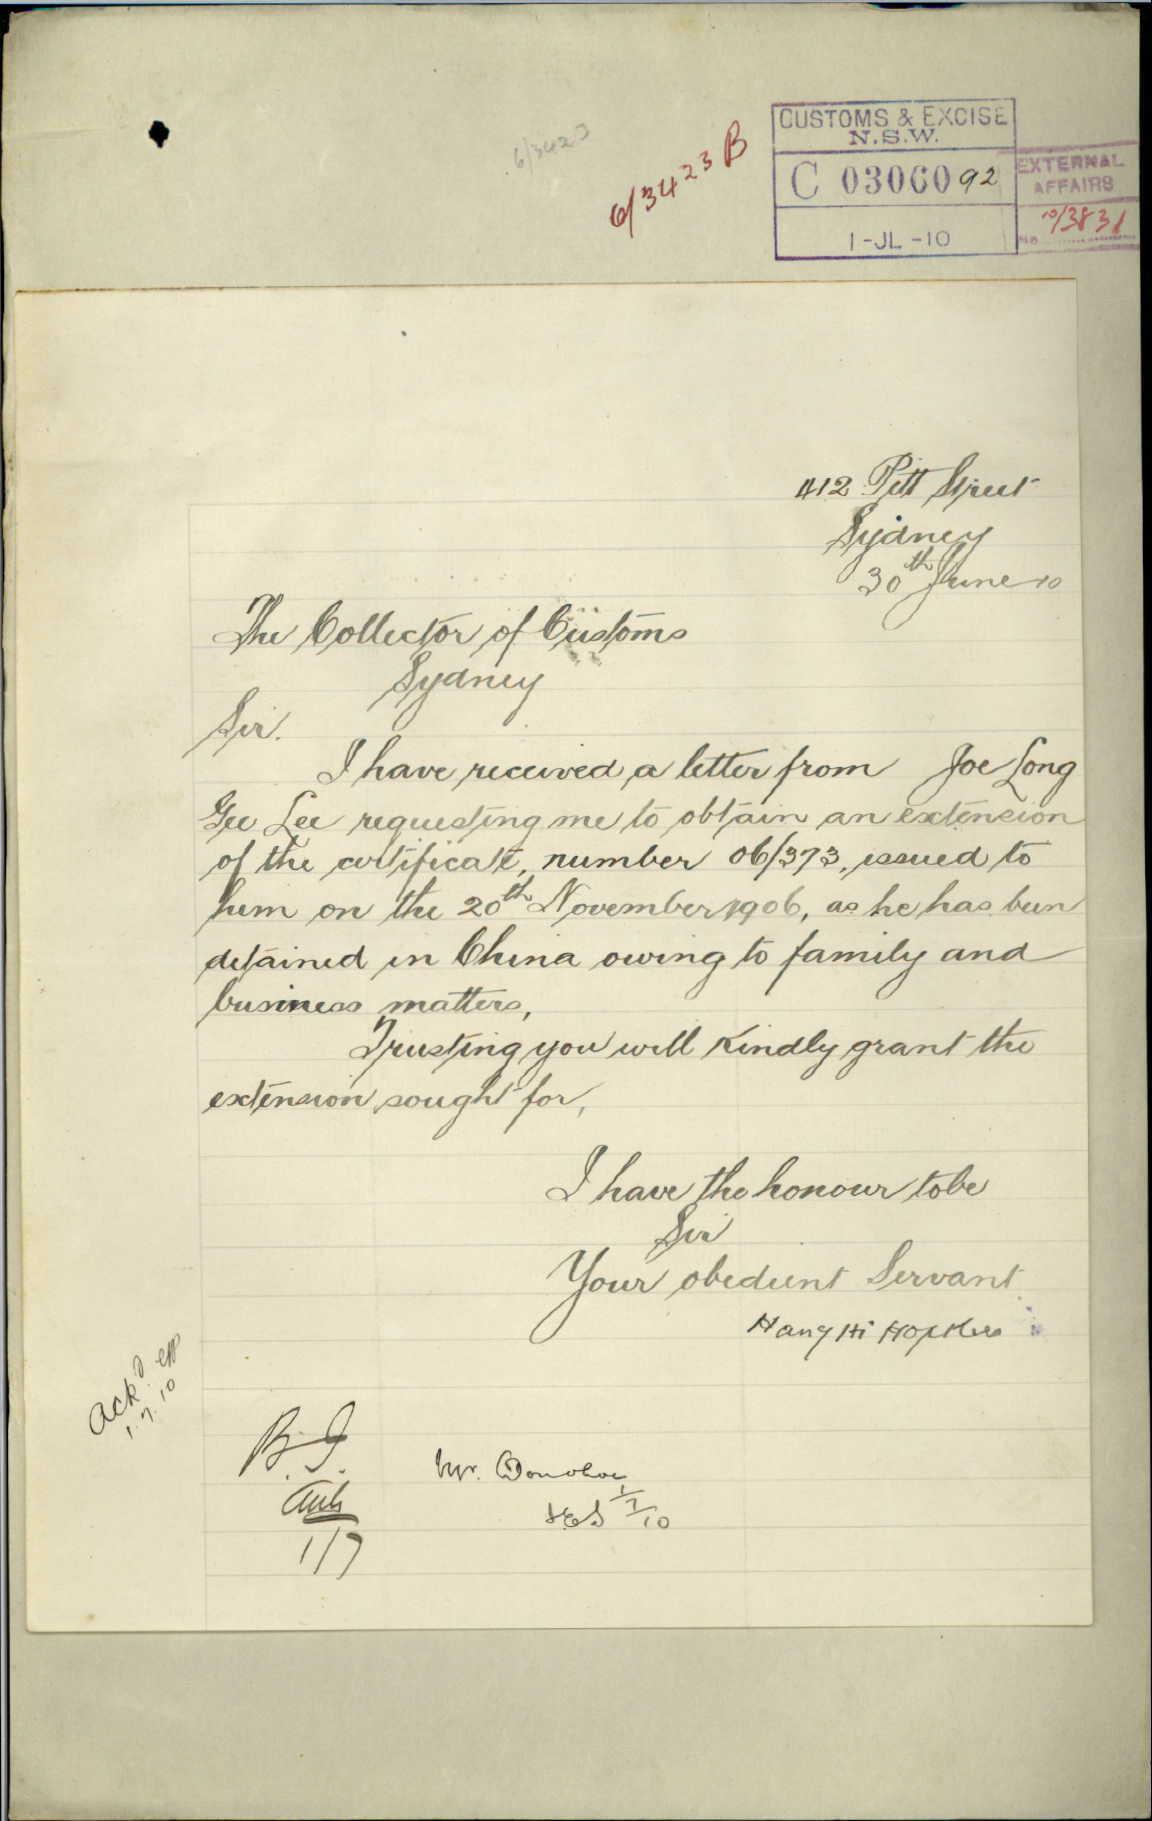 6/3423
6/3423 B
CUSTOMS & EXCISE
N.S.W.
C 03060 92
1-JL-10
EXTERNAL
AFFAIRS
No 10/3831
412 Pitt Street
Sydney
30th June 10
The Collector of Customs
Sydney
Sir.
I have received a letter from Joe Long
Gee Lee requesting me to obtain an extension
of the certificate, number 06/373, issued to
him on the 20th November 1906, as he has been
detained in China owing to family and
business matters,
Trusting you will kindly grant the
extension sought for,
I have the honour to be
Sir
Your obedient Servant
Hang Hi
Ackd
1.7.10
B.I.
1/7
Mr. Donohoe
1/7/10